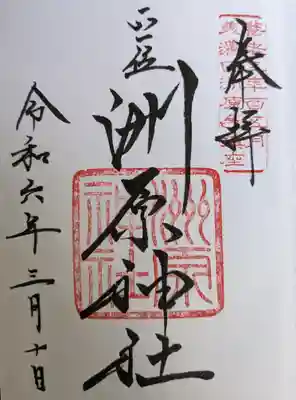 奉拝
正一位
洲原神社
洲原
神社
令和六年三月十日